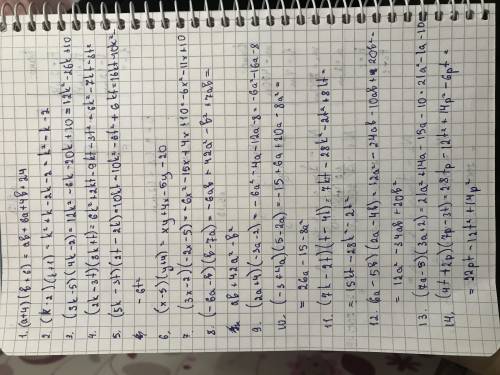 1. (a+4)(b+6) = ab+6a+4b+24
2. (k-2)(k+1) = k²+k-2k-2 = k²-k-2
3. (3k-5)(4k-2) = 12k²-6k-20k+10 = 12k²-26k+10
4. (2k-3t)(3k+t) = 6k²+2kt-9kt-3t² = 6k²-7kt-3t²
5. (5k-3t)(2t-2k) = 10kt-10k²-6t²+6kt = 16kt-10k²-
-6t²
6. (x-5)(y+4) = xy+4x-5y-20
7 (3x-2)(-2x-5) = -6x²-15x+4x+10 = -6x²-11x+10
8. (-6a-b)(b-7a) = -6ab+42a²-b²+7ab =
ab+42a²-b²
9. (2a+4)(-3a-2) = -6a²-4a-12a-8 = -6a²-16a-8
10. (-3+4a)(5-2a) = -15+6a+20a-8a² =
= 26a-15-8a²
11. (7k-2t)(t-4k) = 7kt-28k²-2t²+8kt =
= 15kt-28k²-2t²
12. (6a-5b)(2a-4b) = 12a²-24ab-10ab+20b² =
= 12a²-34ab+20b²
13. (7a-5)(3a+2) = 21a²+14a-15a-10 = 21a²-1a-10
14. (4t+2p)(7p-3t) = 28tp-12t²+14p²-6pt =
= 22pt-12t²+14p²